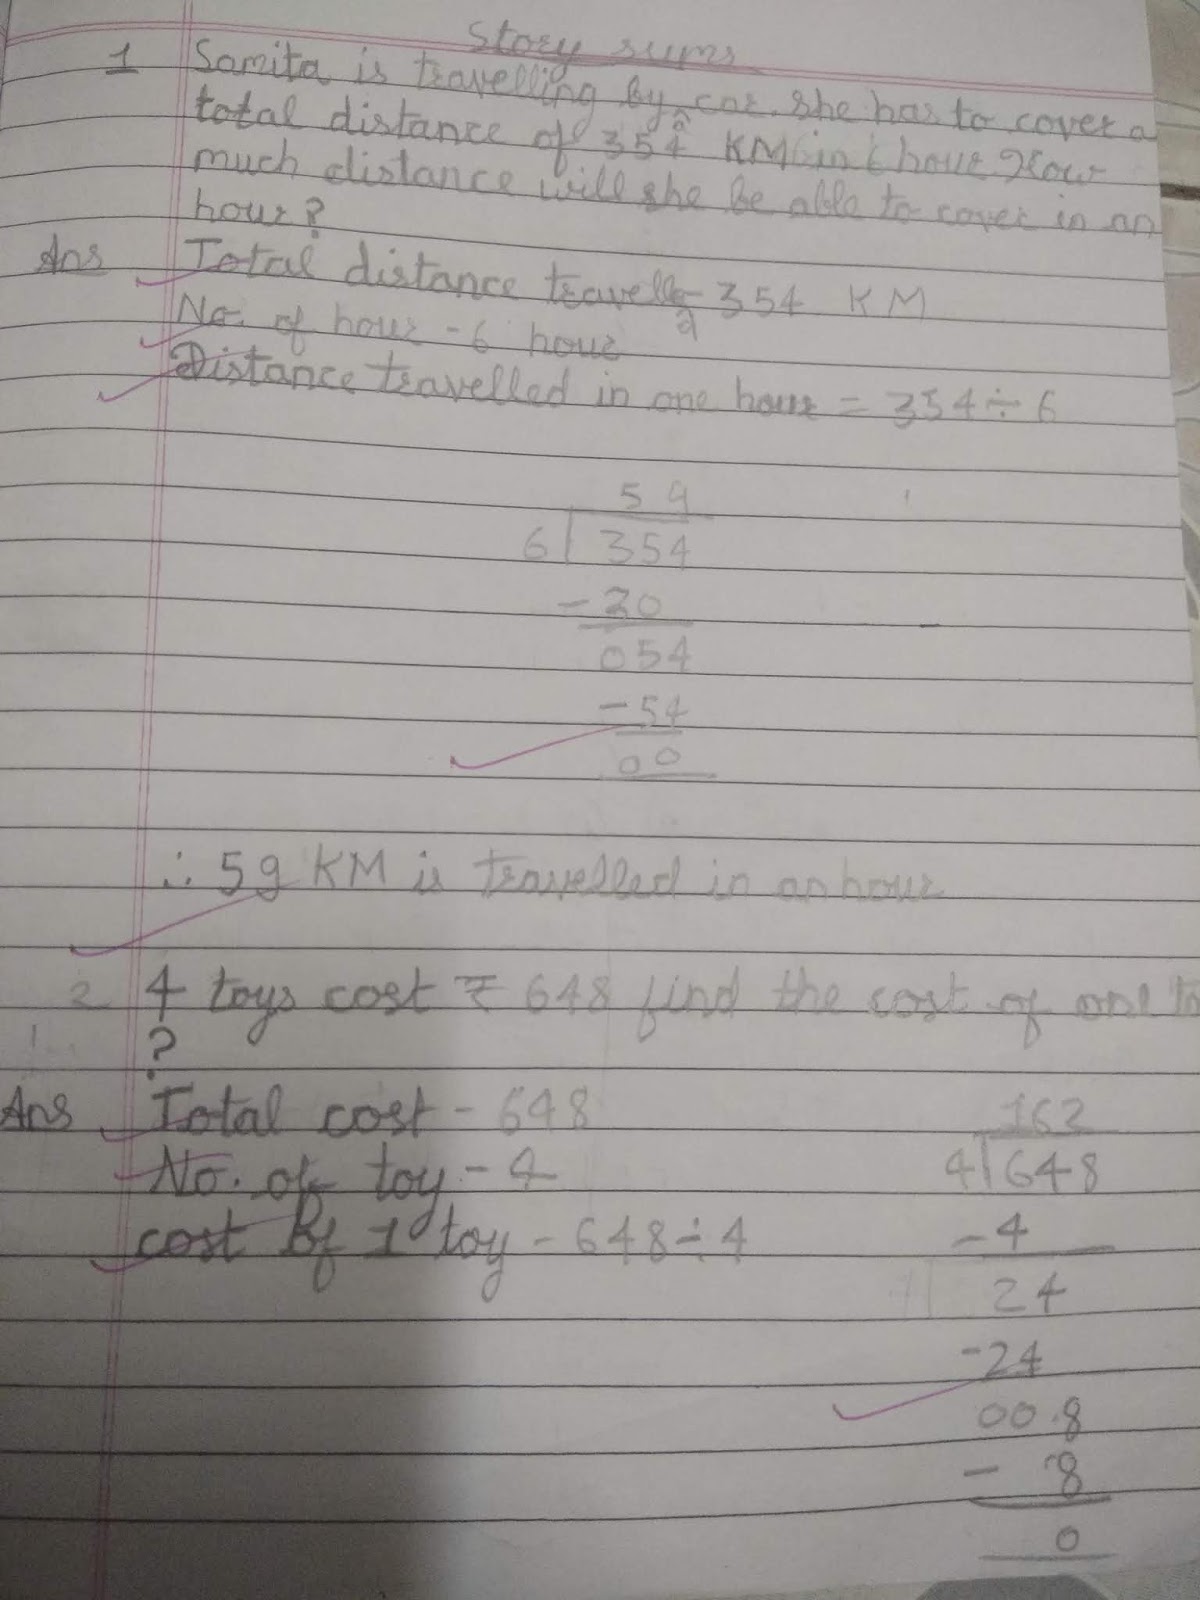 Story sums
1 Samita is travelling by car. She has to cover a
total distance of 354 KM in 6 hour. How
much distance will she be able to cover in an
hour?
Ans Total distance travelled - 354 KM
No. of hour - 6 hour
Distance travelled in one hour = 354 ÷ 6
59
6 354
- 30
054
- 54
00
∴ 59 KM is travelled in an hour
2 4 toys cost ₹ 648 find the cost of one to
?
Ans Total cost - 648
162
No. of toy - 4
4 648
cost of 1 toy - 648 ÷ 4
- 4
24
- 24
00.8
- 8
0